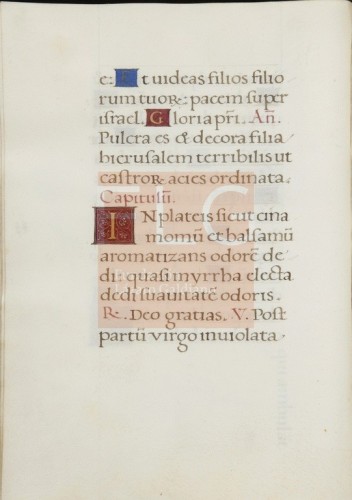 e: Et uideas filios filio
rum tuoꝝ: pacem super
israel. Gloria pr̄i. Añ.
Pulcra es & decora filia
hierusalem terribilis ut
castroꝝ acies ordinata.
Capitulū.
IN plateis sicut cina
momū et balsamū
aromatizans odorē de
di: quasi myrrha electa
dedi suauitatē odoris.
R. Deo gratias. V. Post
partū virgo inuiolata